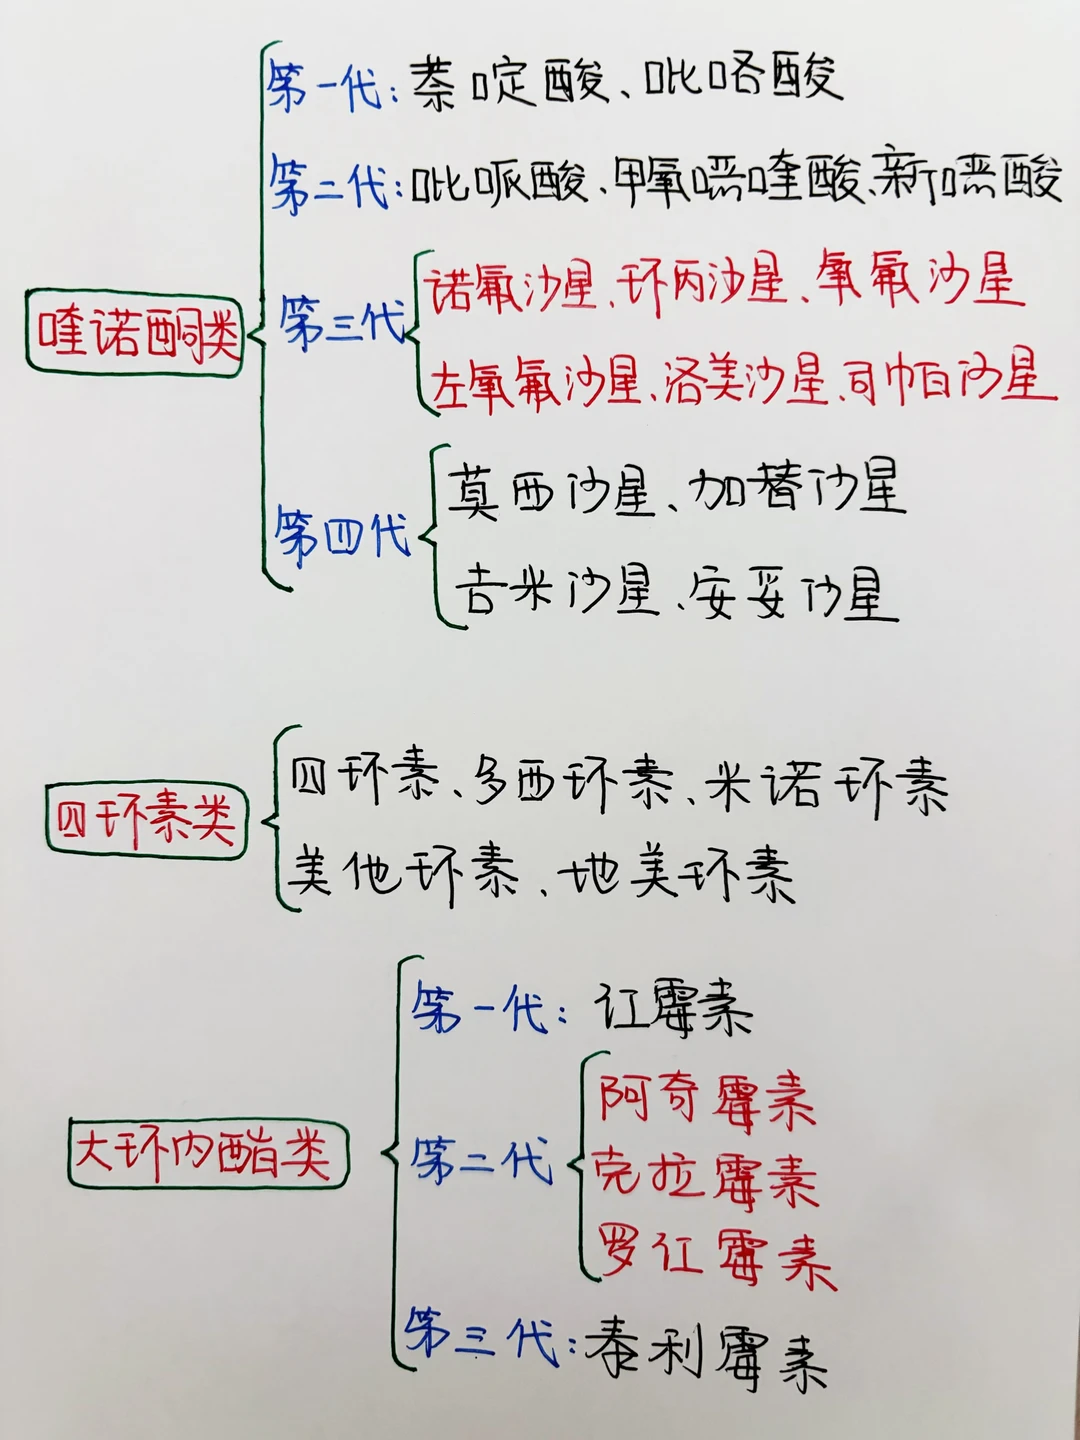 第一代:萘啶酸、吡咯酸
第二代:吡哌酸、甲氧噁喹酸、新噁酸
喹诺酮类
第三代
诺氟沙星、环丙沙星、氧氟沙星
左氧氟沙星、洛美沙星、司帕沙星
第四代
莫西沙星、加替沙星
吉米沙星、安妥沙星
四环素类
四环素、多西环素、米诺环素
美他环素、地美环素
大环内酯类
第一代:红霉素
第二代
阿奇霉素
克拉霉素
罗红霉素
第三代:泰利霉素